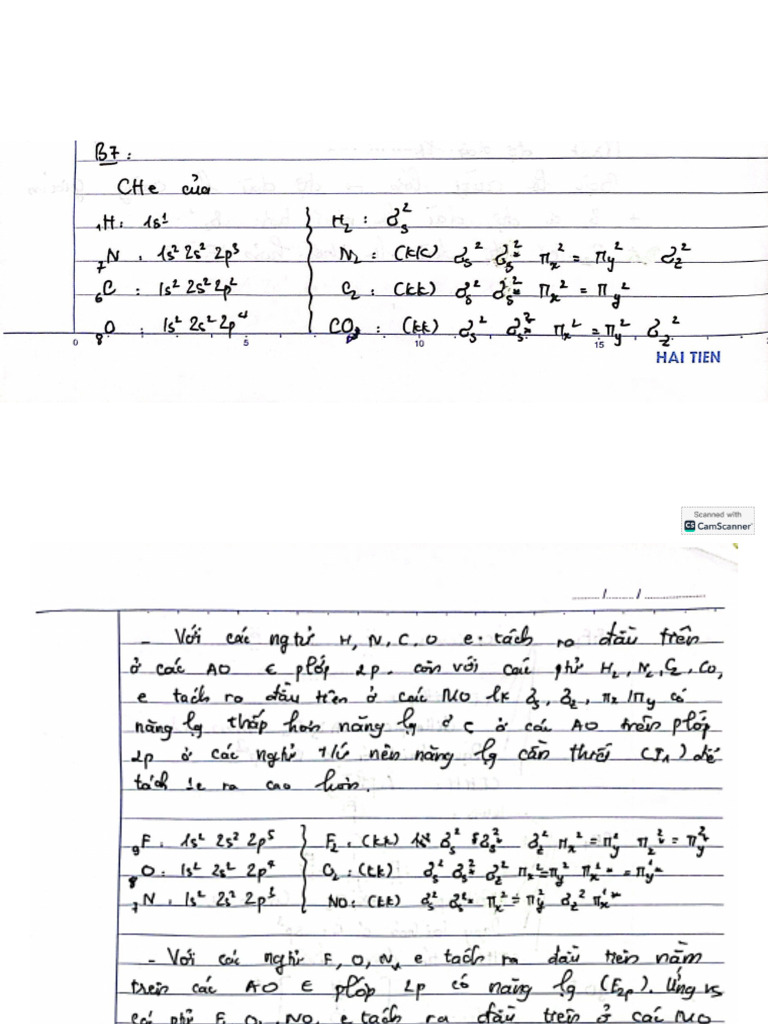 B7:
CHe của
₁H: 1s¹ H₂: σₛ²
₇N: 1s² 2s² 2p³ N₂: (KK) σₛ² σₛ*² πₓ² = πᵧ² σ_z²
₆C: 1s² 2s² 2p² C₂: (KK) σₛ² σₛ*² πₓ² = πᵧ²
₈O: 1s² 2s² 2p⁴ CO: (KK) σₛ² σₛ*² πₓ² = πᵧ² σ_z²
0 5 10 15
HAI TIEN
Scanned with
CS CamScanner
...../...../..........
- Với các ngtử H, N, C, O e tách ra đầu trên
ở các AO ∈ plớp 2p. còn với các ptử H₂, N₂, C₂, CO,
e tách ra đầu tiên ở các MO lk σₛ, σ_z, πₓ/πᵧ có
năng lg thấp hơn năng lg ở các AO trên plớp
2p ở các ngtử nên năng lg cần thiết (I₁) để
tách 1e ra cao hơn.
₉F: 1s² 2s² 2p⁵ F₂: (KK) σₛ² σₛ*² σ_z² πₓ² = πᵧ²
₈O: 1s² 2s² 2p⁴ O₂: (KK) σₛ² σₛ*² σ_z² πₓ² = πᵧ² πₓ¹* = πᵧ¹*
₇N: 1s² 2s² 2p³ NO: (KK) σₛ² σₛ²* πₓ² = πᵧ² σ_z² πₓ¹*
- Với các ngtử F, O, N, e tách ra đầu tiên nằm
trên các AO ∈ plớp 2p có năng lg (E₂ₚ). Ứng vs
các ptử F₂ O₂ NO, e tách ra đầu trên ở các MO